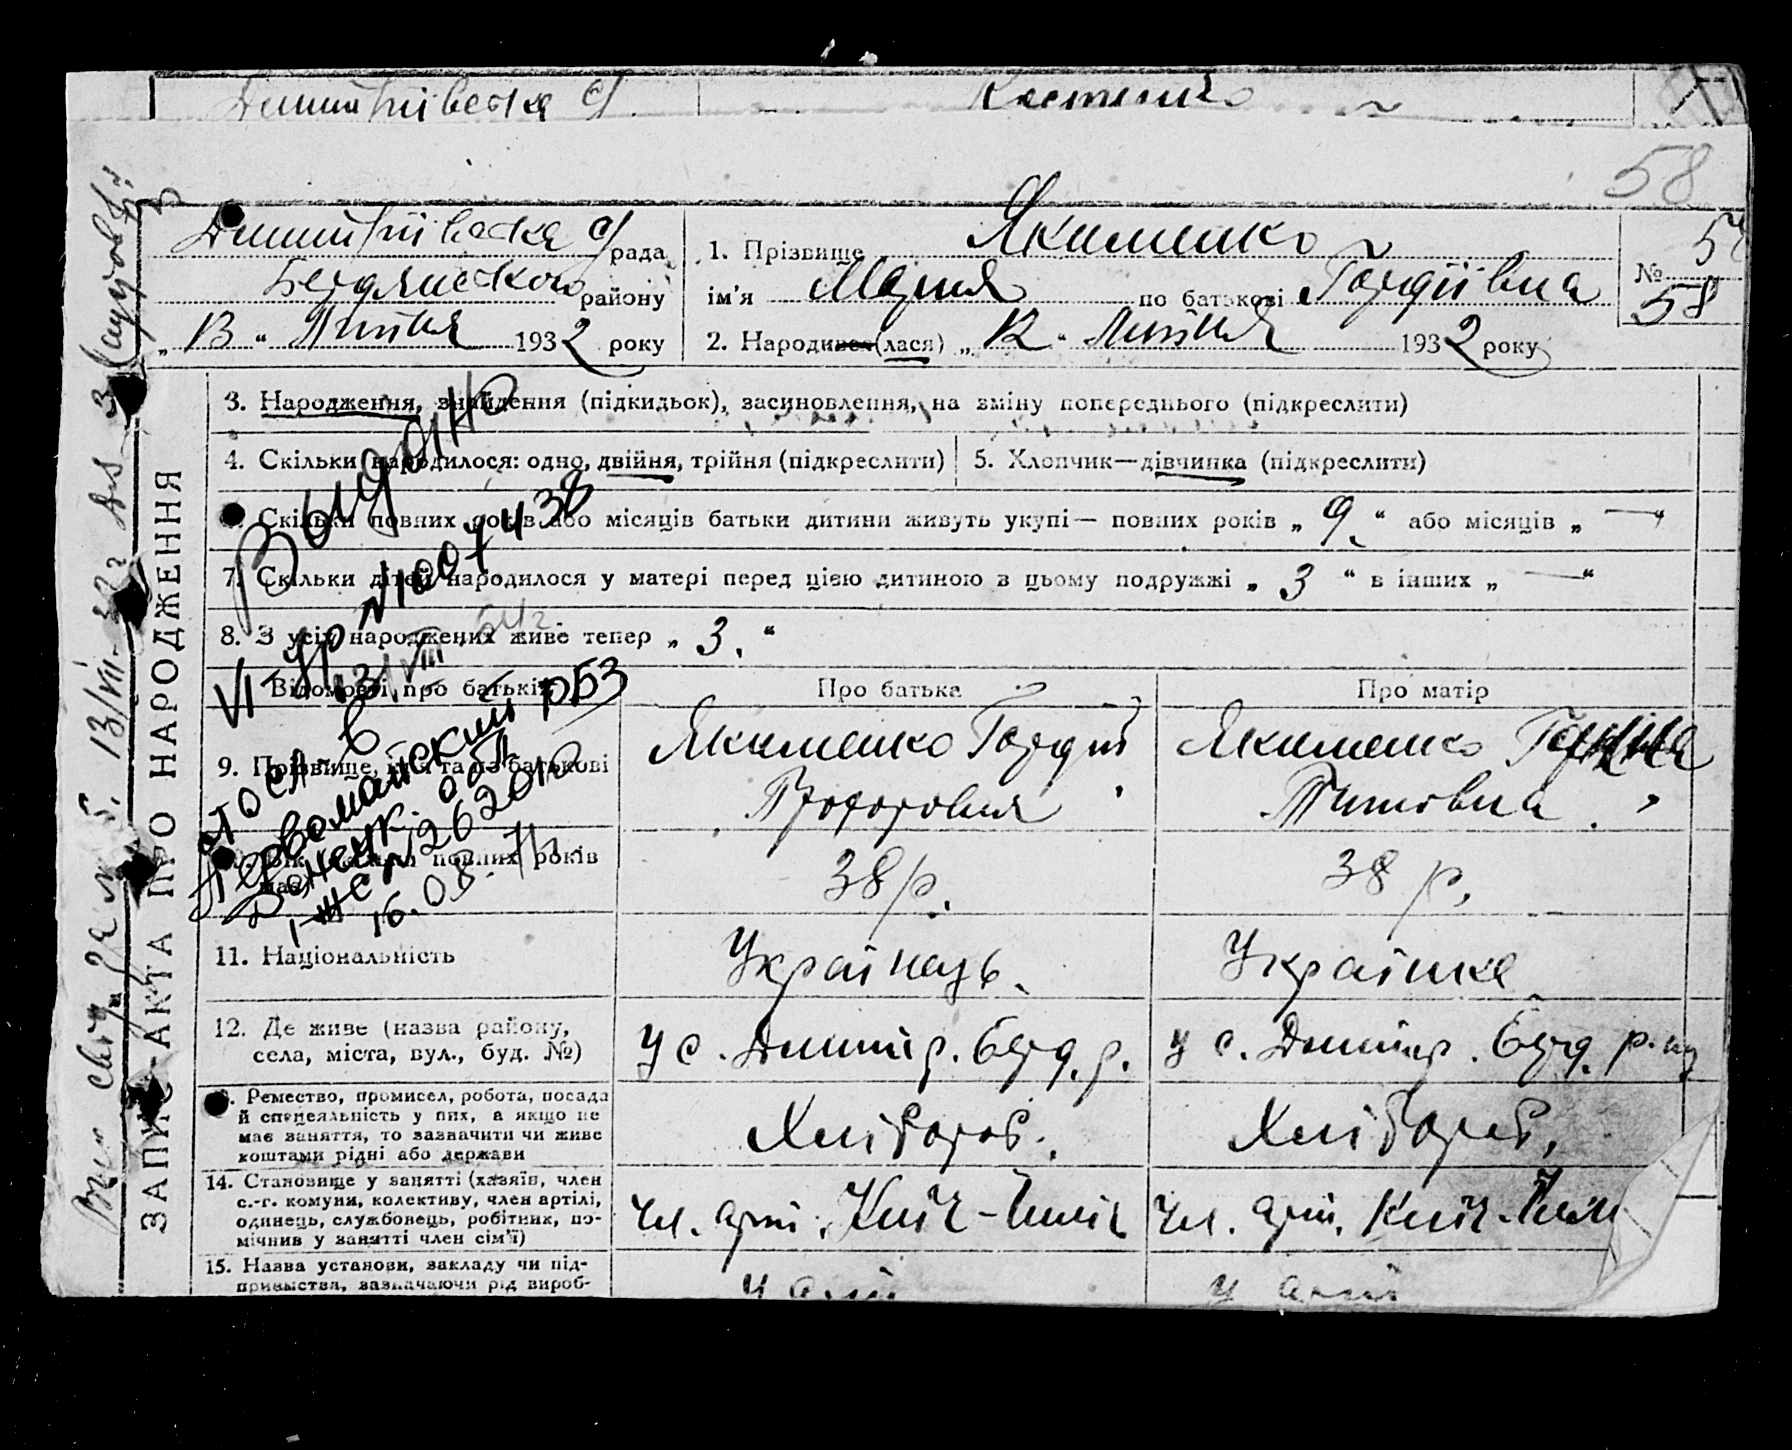 Дмитрівська с/
58
Дмитрівська с/рада
Бердянського району
„ 13 “ Липня 1932 року
1. Прізвище Якименко
ім'я Мария по батькові Гордіївна
2. Народився (лася) „ 12 “ Липня 1932 року
№
58
ЗАПИС АКТА ПРО НАРОДЖЕННЯ
3. Народження, знайдення (підкидьок), засиновлення, на зміну попереднього (підкреслити)
4. Скільки народилося: одно, двійня, трійня (підкреслити)
5. Хлопчик—дівчинка (підкреслити)
Скільки повних років або місяців батьки дитини живуть укупі — повних років „ 9. “ або місяців „ — “
7. Скільки дітей народилося у матері перед цією дитиною в цьому подружжі „ 3 “ в інших „ — “
8. З усіх народжених живе тепер „ 3. “
Выдано
VI-яр №1007438
13/VIII 64г.
Відомості про батьків
Про батька
Про матір
9. Прізвище, ім'я та по батькові
Якименко Гордій
Федорович
Якименко
Титовна
повних років
38 р.
38 р.
в
Первомайский рБЗ
Донецк. обл
16.08.
11. Національність
Українець.
Українка
12. Де живе (назва району,
села, міста, вул., буд. №)
у с. Дмитр. Берд. р.
у с. Дмитр. Берд. р-ну
Ремество, промисел, робота, посада
й спецеяльність у них, а якщо не
має заняття, то зазначити чи живе
коштами рідні або держави
Хлібороб.
Хлібороб.
14. Становище у занятті (хазяїн, член
с.-г. комуни, колективу, член артілі,
одинець, службовець, робітник, по-
мічник у занятті член сім'ї)
Чл. арт.
Чл. арт.
15. Назва установи, закладу чи під-
приємства, зазначаючи рід вироб-
у арт
у арт